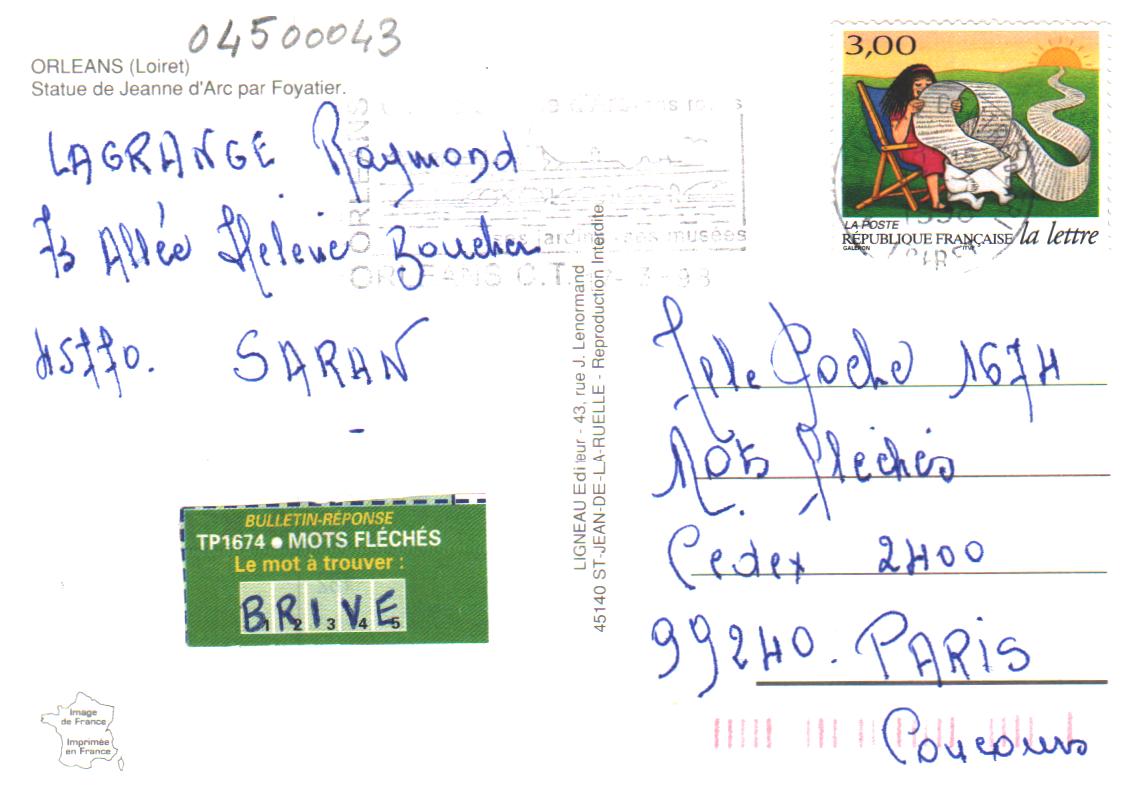 04500043
ORLEANS (Loiret)
Statue de Jeanne d'Arc par Foyatier.
LAGRANGE Raymond
73 Allée Helene Boucher
45770. SARAN
BULLETIN-RÉPONSE
TP1674 ● MOTS FLÉCHÉS
Le mot à trouver :
BRIVE
1 2 3 4 5
Image
de France
Imprimée
en France
LIGNEAU Editeur - 43, rue J. Lenormand
45140 ST-JEAN-DE-LA-RUELLE - Reproduction Interdite.
ORLEANS
ses musées
ORLEANS C.T.
3,00
LA POSTE
RÉPUBLIQUE FRANÇAISE la lettre
GALERON ITVF
Tele Poche 1674
Mots Fléchés
Cedex 2400
99240. PARIS
Concours